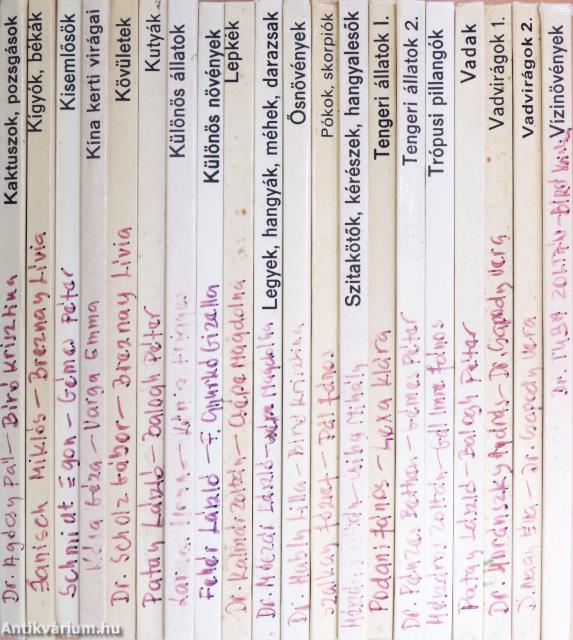 Kaktuszok, pozsgások
Dr. Agócsy Pál - Biró Krisztina
Kígyók, békák
Janisch Miklós - Breznay Lívia
Kisemlősök
Schmidt Egon - Gémes Péter
Kína kerti virágai
Kósa Géza - Varga Emma
Kövületek
Dr. Scholz Gábor - Breznay Lívia
Kutyák
Patay László - Balogh Péter
Különös állatok
Különös növények
Fehér László - F. Gyurkó Gizella
Lepkék
Dr. Kalmár Zoltán - Csépe Magdolna
Legyek, hangyák, méhek, darazsak
Dr. Móczár László - Csépe Magdolna
Ősnövények
Dr. Hably Lilla - Biró Krisztina
Pókok, skorpiók
József - Pál János
Szitakötők, kérészek, hangyalesők
Mihály
Tengeri állatok 1.
Podani János - Kara Klára
Tengeri állatok 2.
Dr. Pénzes Bethen - Gémes Péter
Trópusi pillangók
Mészáros Zoltán - Gál Imre János
Vadak
Patay László - Balogh Péter
Vadvirágok 1.
Dr. Voránszky András - Dr. Csapody Vera
Vadvirágok 2.
Éva - Dr. Csapody Vera
Vízinövények
Dr. TUBA ZOLTÁN - Biró Krisz
Antikvárium.hu